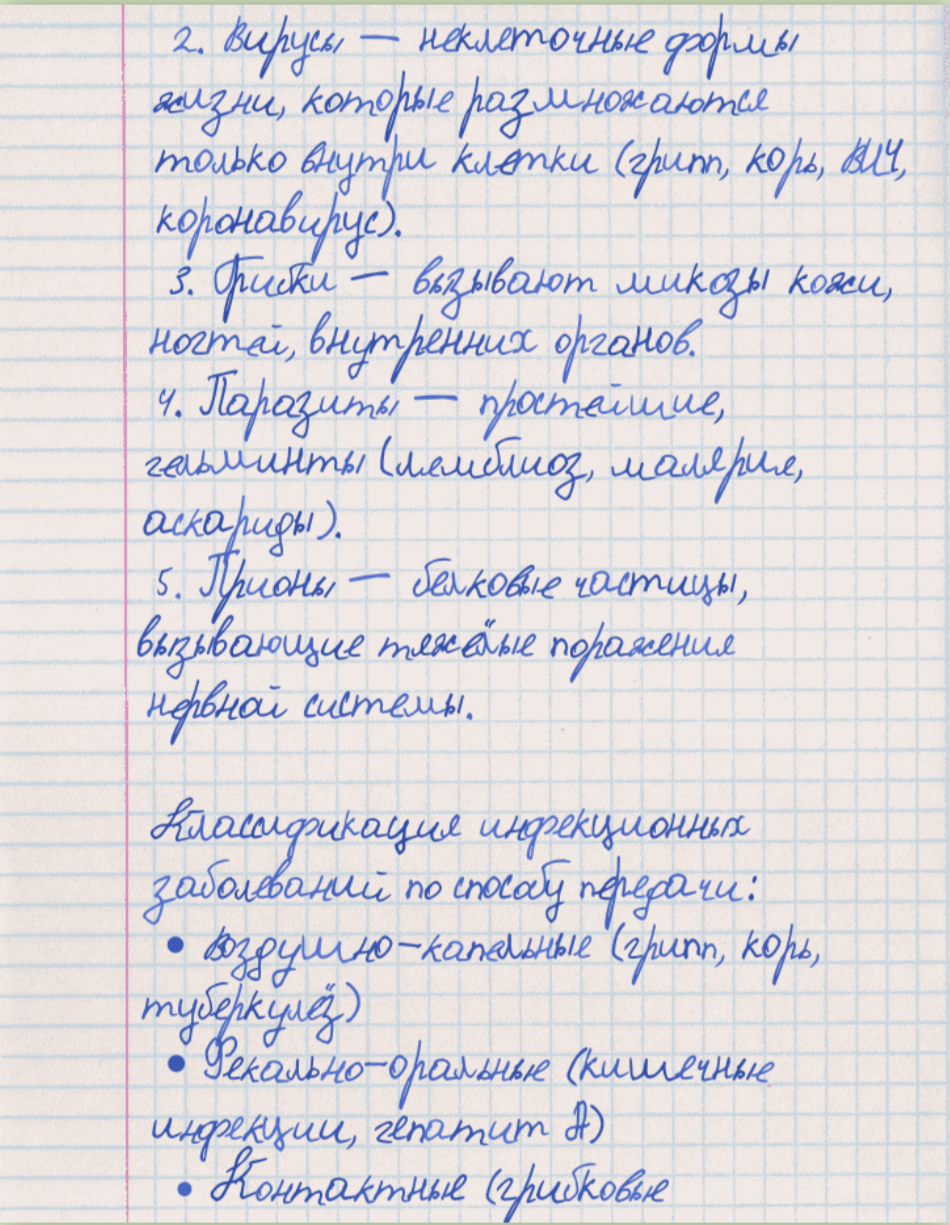 2. Вирусы — неклеточные формы
жизни, которые размножаются
только внутри клетки (грипп, корь, ВИЧ,
коронавирус).
3. Грибки — вызывают микозы кожи,
ногтей, внутренних органов.
4. Паразиты — простейшие,
гельминты (лямблиоз, малярия,
аскариды).
5. Прионы — белковые частицы,
вызывающие тяжёлые поражения
нервной системы.
Классификация инфекционных
заболеваний по способу передачи:
• Воздушно-капельные (грипп, корь,
туберкулёз)
• Фекально-оральные (кишечные
инфекции, гепатит А)
• Контактные (грибковые